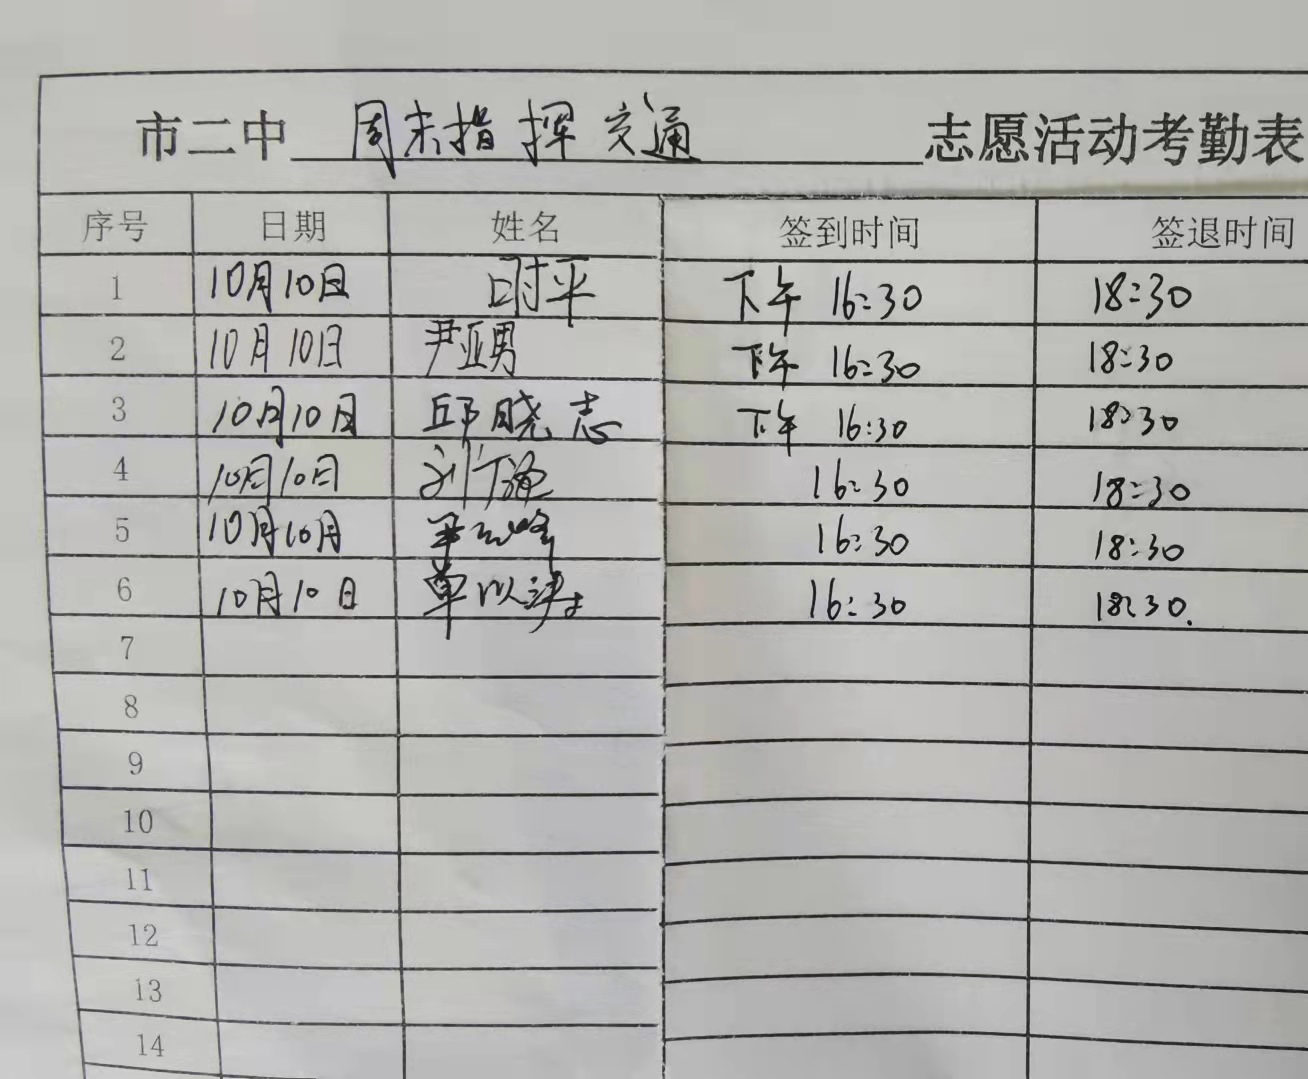 市二中 周末指挥交通 志愿活动考勤表
序号 日期 姓名 签到时间 签退时间
1 10月10日 时平 下午 16:30 18:30
2 10月10日 尹亚男 下午 16:30 18:30
3 10月10日 邱晓志 下午 16:30 18:30
4 10月10日 刘 16:30 18:30
5 10月10日 16:30 18:30
6 10月10日 单以 16:30 18:30.
7
8
9
10
11
12
13
14